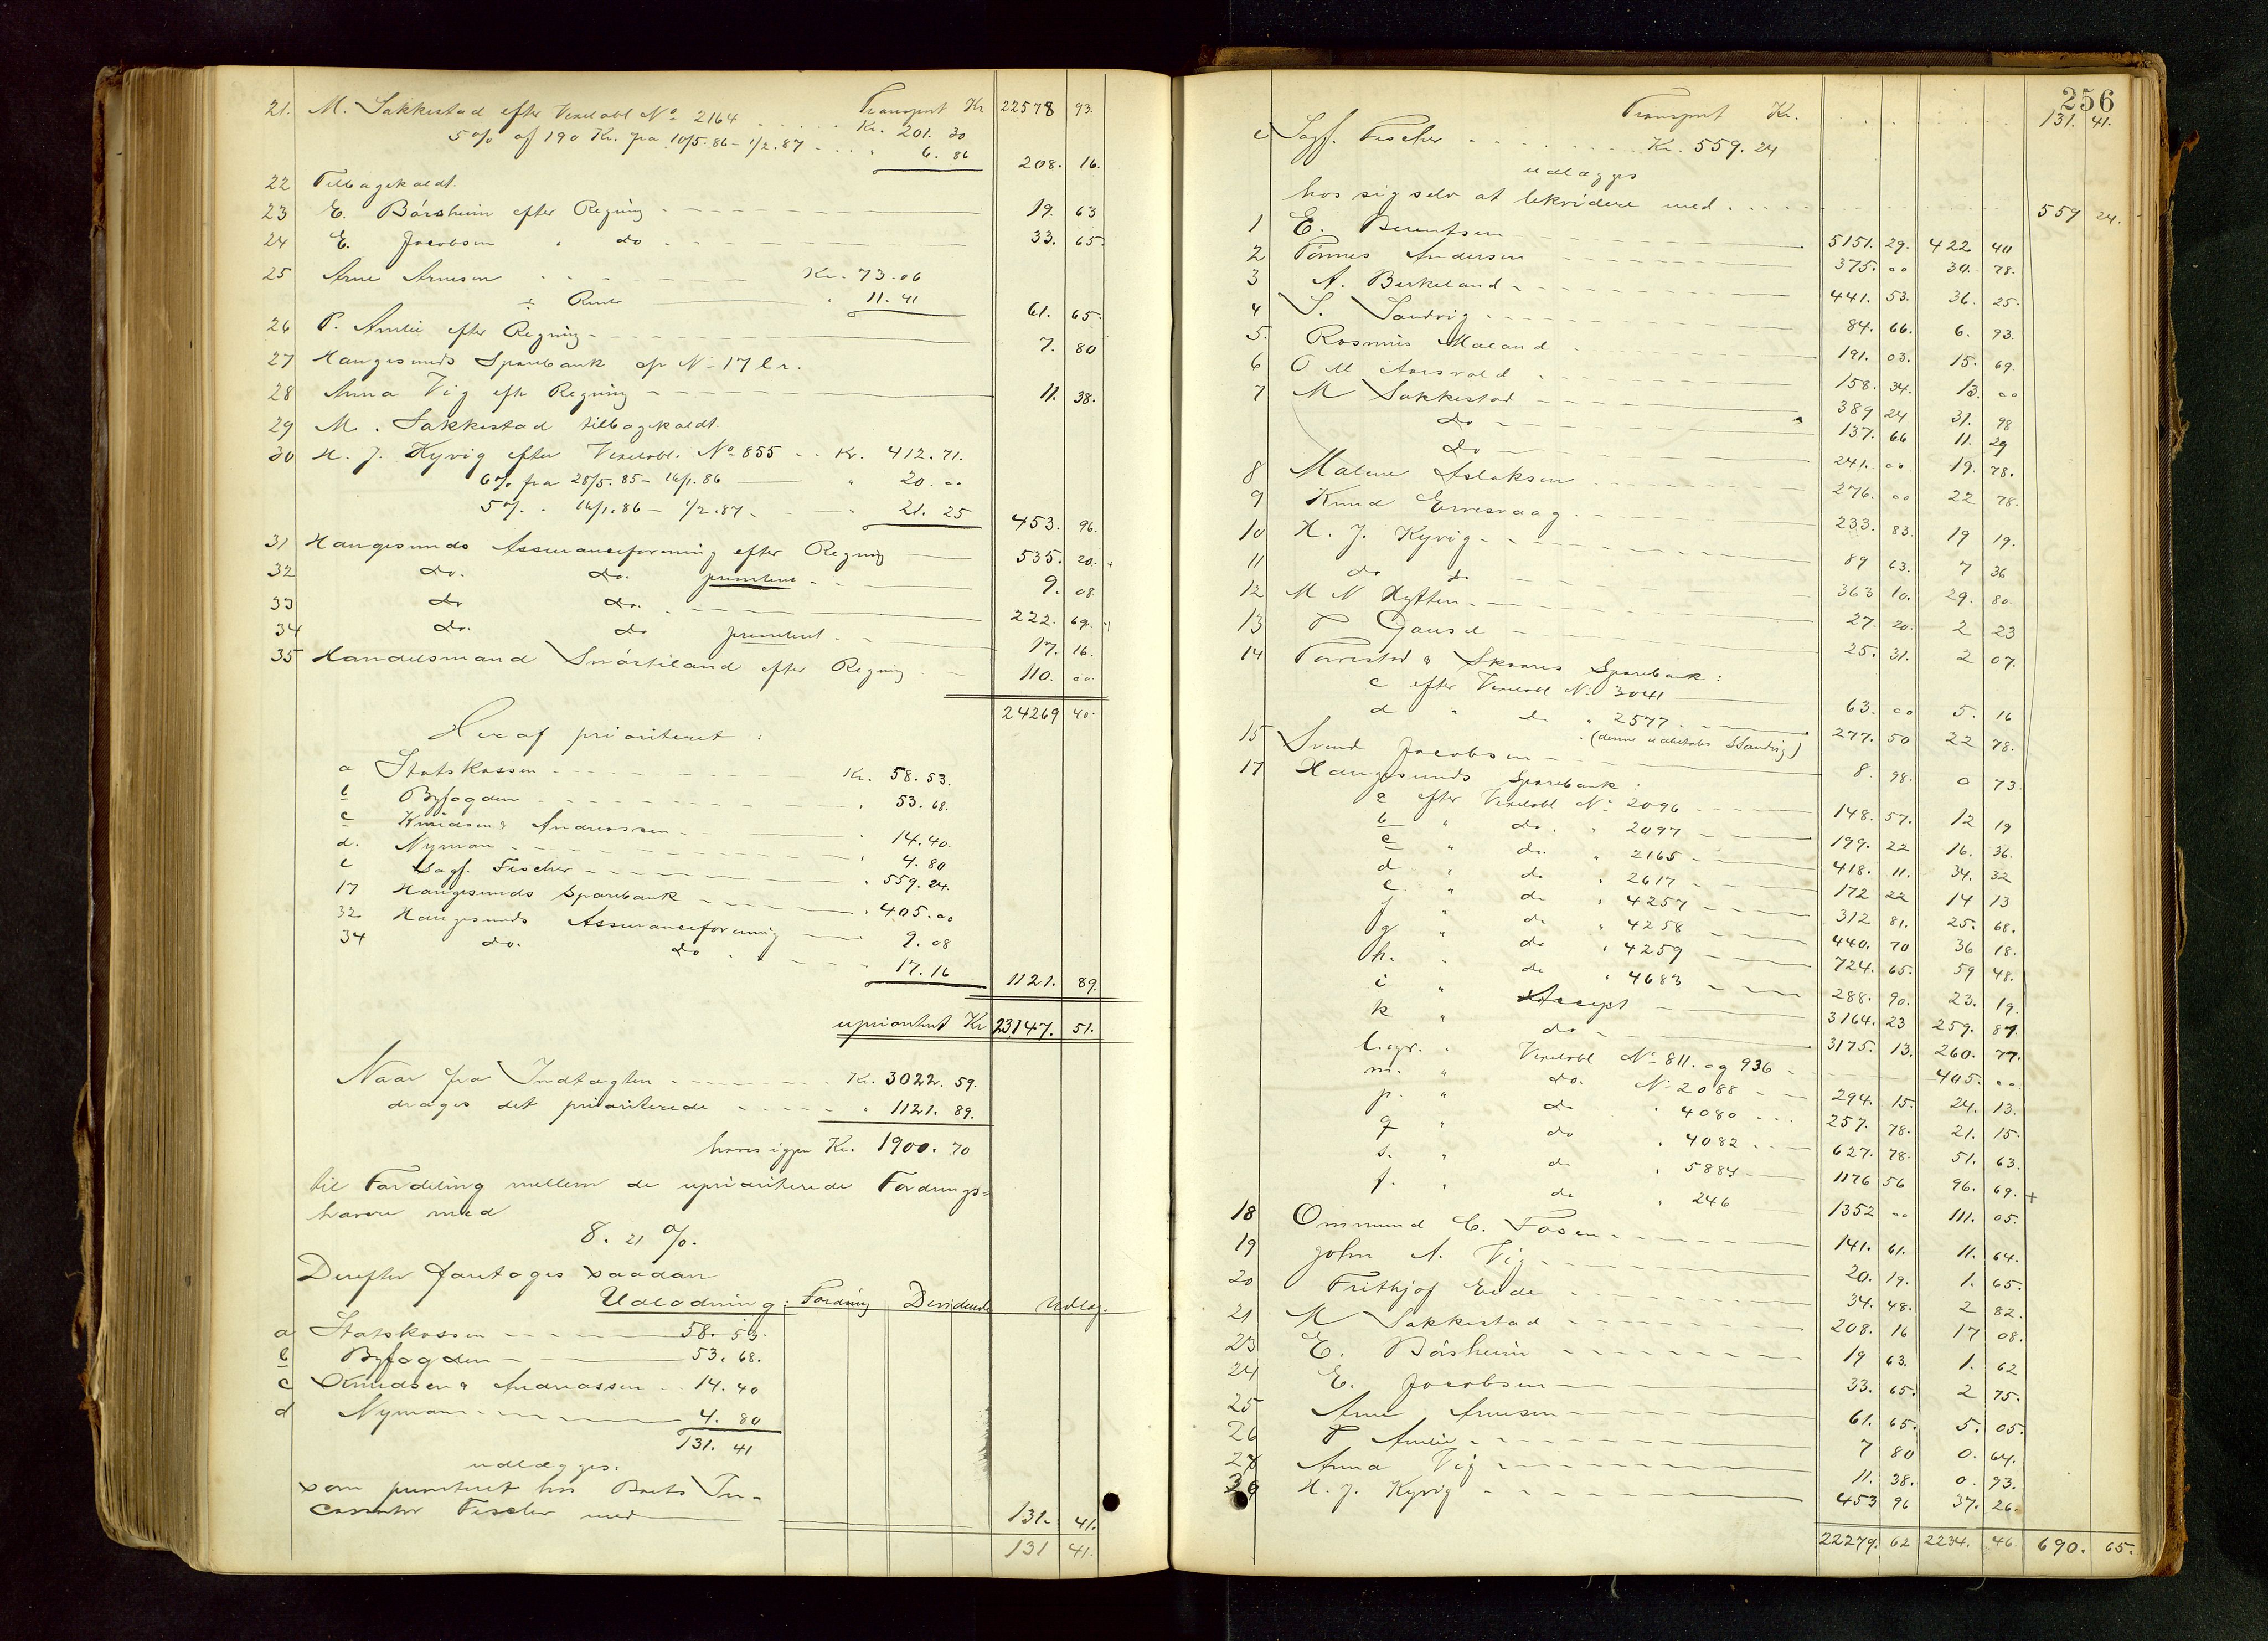 Transport Kr 22578 93.
21. M. Sakkestad efter Vexelobl No 2164 . . . . . Kr. 201. 30
5% af 190 Kr. fra 10/5.86 – 1/2.87 - . . . " 6. 86 208. 16.
22 Tilbagekaldt.
23 E. Børsheim efter Regning 19. 63
24 E. Jacobsen " do 33. 65
25 Arne Arnesen Kr. 73.06
÷ Rente " 11.41 61. 65.
26 P. Amlie efter Regning 7. 80
27 Haugesunds Sparebank op N. 17 l r.
28 Anna Vig efter Regning 11. 38.
29 M. Sakkestad tilbagekaldt.
30 H. J. Kyvig efter Vexelobl. No 855 . . Kr. 412.71.
6% fra 28/5.85 – 16/1.86 " 20.00
5% " 16/1.86 – 1/2.87 " 21. 25 453. 96.
31 Haugesunds Assuranceforening efter Regning 535. 20.
32 do. do. prioriteret 9. 08
33 do do. 222. 69.
34 do. do prioriteret 17. 16.
35 Handelsmand Svortiland efter Regning 110. 00
24269 40.
Heraf prioriteret :
a Statskassen Kr. 58. 53.
b Byfogden " 53. 68.
c Knudsen & Andreassen " 14.40.
d. Nyman " 4. 80
e Sagf. Fischer " 559. 24.
17 Haugesunds Sparebank " 405.00
32 Haugesunds Assuranceforening 9. 08
34 do. do 17. 16 1121. 89.
uprioriteret Kr 23147. 51.
Naar fra Indtægten Kr. 3022. 59.
drages det prioriterede " 1121. 89.
haves igjen Kr. 1900. 70
til Fordeling mellem de uprioriterede Fordrings-
havere med
8. 21 %.
Derefter foretages saadan
Udlodning : Fordring Dividende Udlæg.
a Statskassen 58. 53.
b Byfogden 53. 68.
c Knudsen & Andreassen 14. 40
d Nyman 4. 80
131. 41
udlægges.
som prioriteret hos Boets In-
cassator Fischer med 131. 41.
131 41.
256
Transport Kr. 131. 41.
e Sagf. Fischer Kr. 559. 24
udlægges
hos sig selv at likvidere med 559 24.
1 E. Berentsen 5151. 29. 422 40
2 Tønnes Andersen 375. 00 30. 78.
3 A. Birkeland 441. 53. 36. 25.
4 S. Sandvig 84. 66. 6. 93.
5. Rasmus Maland 191. 03. 15. 69.
6 O M Aarsvold 158. 34. 13. 00
7 M Sakkestad 389 24 31. 98
do 137. 66 11. 29
do 241. 00 19. 78.
8 Malene Aslaksen 276. 00 22 78.
9 Knud Ervesvaag 233. 83. 19 19.
10 H. J. Kyvig 89 63. 7 36
11 do do 363 10. 29. 80.
12 M N Hytten 27. 20. 2 23
13 P Gausel 25. 31. 2 07.
14 Torvestad & Skaares Sparebank :
c efter Vexelobl No 3041 63. 00 5. 16
d " do " 2577 277. 50 22 78.
(denne udbetales S Sandvig)
15 Svend Jacobsen 8. 98. 0 73.
17 Haugesunds Sparebank :
a efter Vexelobl No 2096 148. 57. 12 19
b " do. " 2097 199. 22 16. 36.
c " do. " 2165 418. 11. 34. 32
d " do " 2617 172 22 14 13
e " do " 4257 312 81. 25. 68.
f " do " 4258 440. 70 36 18.
g " do " 4259 724. 65. 59 48.
h. " do " 4683 288. 90. 23. 19.
i " Accept 3164. 23 259. 87.
k " do 3175. 13. 260. 77.
l. og r. " Vexelobl No 811. og 936 405. 00
m. " do. No 2088 294. 15. 24. 13.
p. " do " 4080 257. 78. 21. 15.
q " do " 4082 627. 78. 51. 63.
s. " do " 5884 1176 56 96. 69. +
f. " do " 246 1352 00 111. 05.
18 Ommund C. Fosen 141. 61. 11. 64.
19 John A. Vig 20. 19. 1. 65.
20 Frithjof Eide 34. 48. 2 82.
21 M Sakkestad 208. 16 17 08.
23 E. Børsheim 19 63. 1. 62
24 E. Jacobsen 33. 65. 2 75.
25 Arne Arnesen 61. 65. 5. 05.
26 P Amlie 7 80 0. 64.
28 Anna Vig 11. 38. 0. 93.
30 H. J. Kyvig 453 96 37. 26.
22279. 62 2234. 46 690. 65.